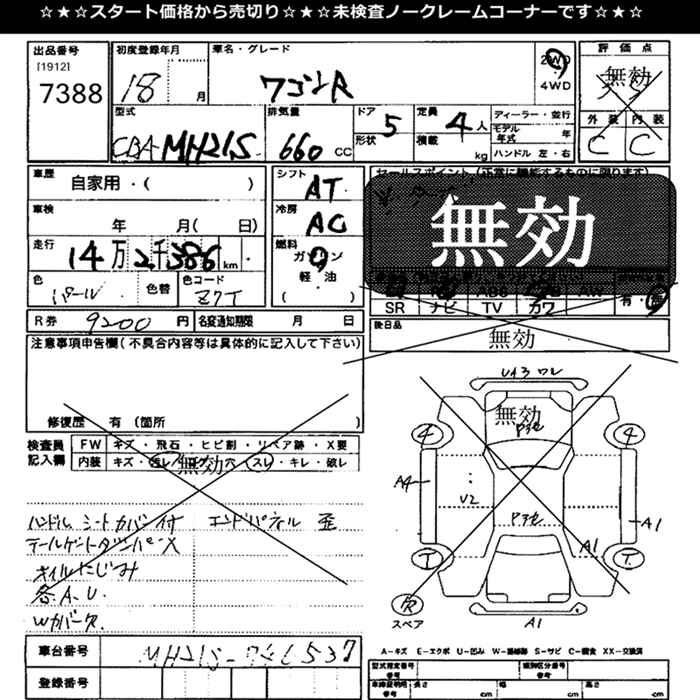 ☆★☆★スタート価格から売切り☆★☆★未検査ノークレームコーナーです☆★☆
出品番号
[1912]
7388
初度登録年月
18 月
車名・グレード
ワゴンR
2WD
4WD
評価点
無効
外装 内装
C C
型式
CBA MH21S
排気量
660 CC
ドア
5
形状
定員
4 人
積載
kg
ディーラー・並行
モデル年式 年
ハンドル 左・右
車歴
自家用・( )
車検
年 月( 日)
走行
14万2千386km
色
パール
色替
色コード
Z7T
シフト
AT
冷房
AC
燃料
ガソリン
軽・油
( )
セールスポイント(正常に機能するものに限ります)
無効
SR ナビ TV カワ
有・無
R券 9200 円
名変通知期限 月 日
後日品
無効
注意事項申告欄(不具合内容等は具体的に記入して下さい)
修復歴 有(箇所
検査員記入欄
FW キズ・飛石・ヒビ割・リペア跡・X要
内装 キズ・汚レ・コゲ・穴・スレ・キレ・破レ
無効
ハンドル シートカバー付 エンドパネル 歪
テールゲートダンパーX
オイルにじみ
各A.U.
Wカバーケ
車台番号
MH21S-
登録番号
無効
4
4
A4
U2
A1
A1
スペア
A1
A-キズ E-エクボ U-凹み W-補修跡 S-サビ C-腐食 XX-交換済
型式指定番号
参考
類別区分番号
参考
車庫証明用
参考
長さ cm
幅 cm
高さ cm